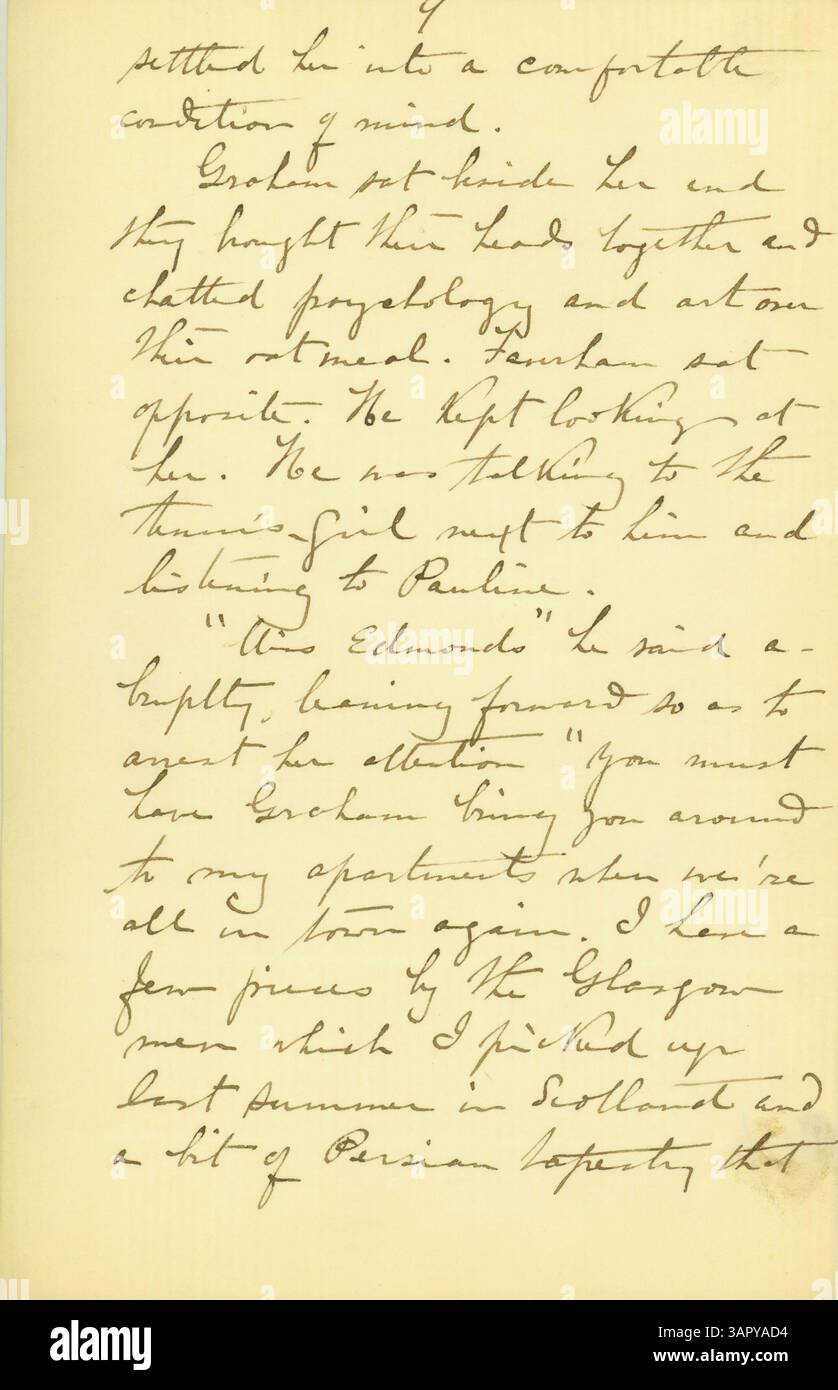 9
settled her into a comfortable
condition of mind.
Graham sat beside her and
they brought their heads together and
chatted psychology and art over
their oatmeal. Faverham sat
opposite. He kept looking at
her. He was talking to the
tennis-girl next to him and
listening to Pauline.
"Miss Edmonds" he said a-
bruptly, leaning forward so as to
arrest her attention "you must
have Graham bring you around
to my apartments when we're
all in town again. I have a
few pieces by the Glasgow
men which I picked up
last summer in Scotland and
a bit of Persian tapestry that
alamy
Image ID: 3APYAD4
www.alamy.com